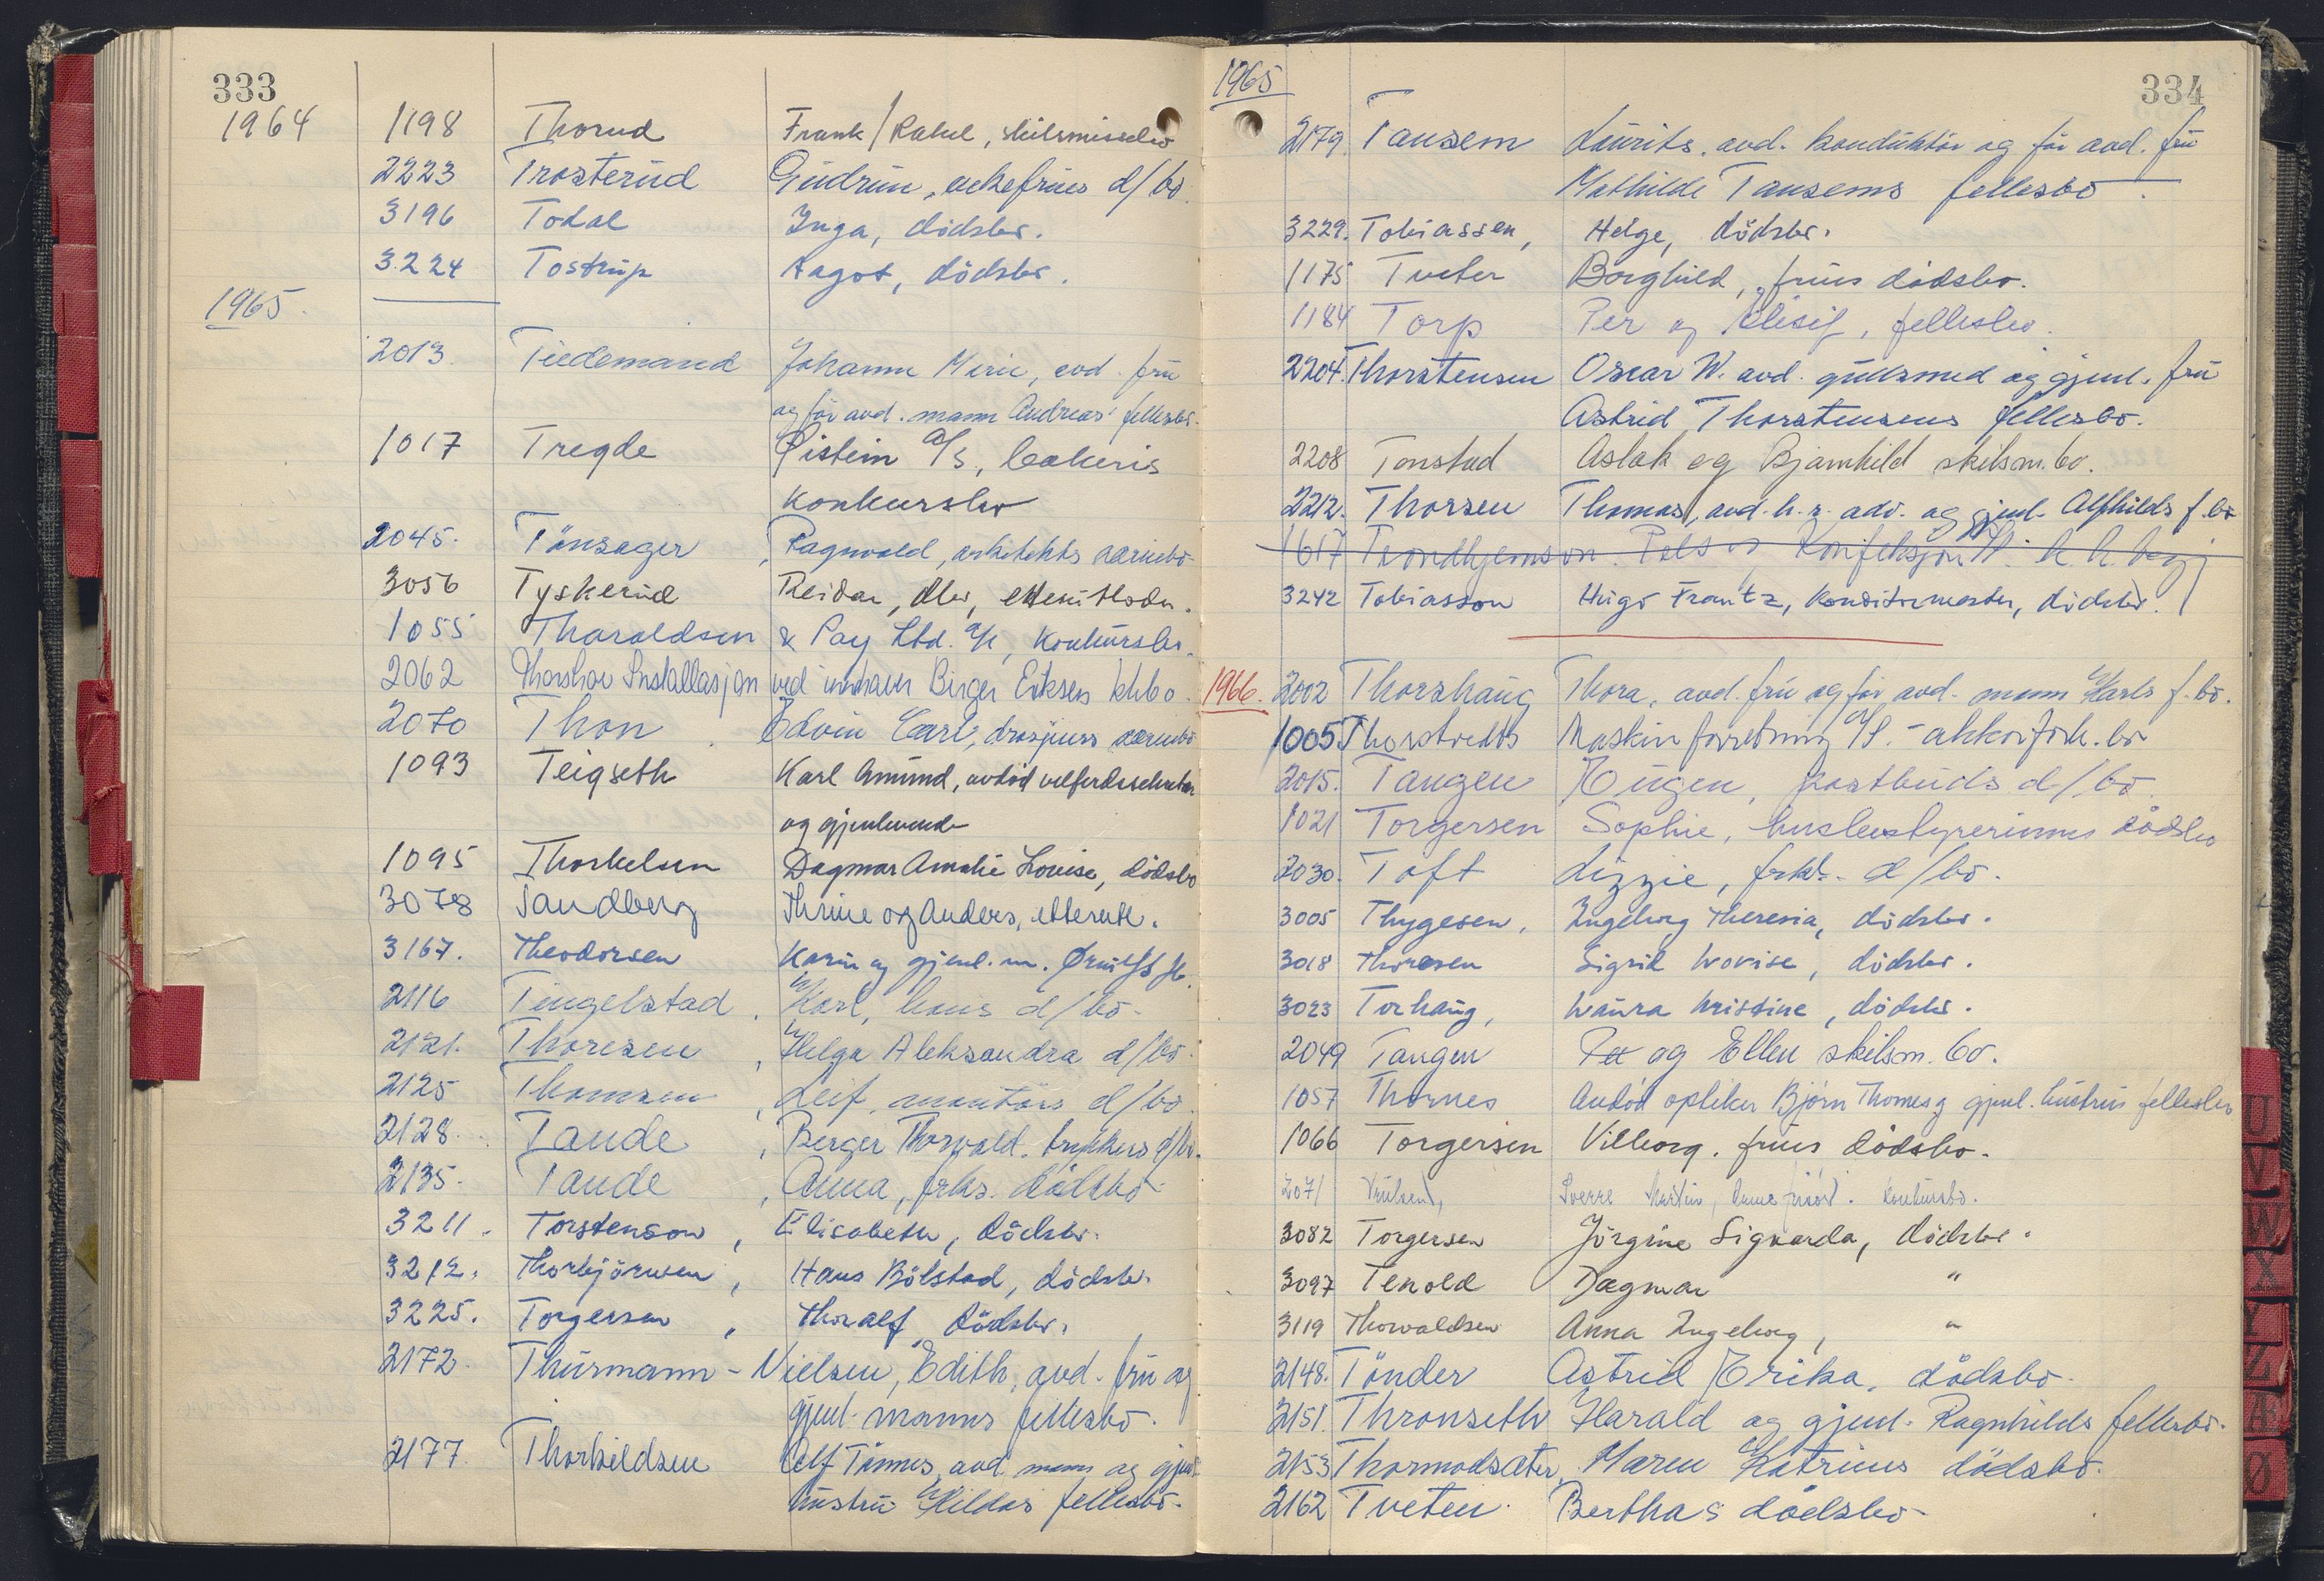 333
1964 1198 Thorud Frank / Rakel, skilsmissebo
2223 Trosterud Gudrun, enkefrues d/bo.
3196 Todal Inga, dödsbo.
3224 Tostrup Aagot, dödsbo.
1965.
2013. Tiedemand Johanne Marie, avd. fru
og før avd. mann Andreas' fellesbo.
1017 Tregde Øistein A/S, bakeris
konkursbo
2045. Tönsager, Ragnvald, arkitekts særuebo
3056 Tyskerud Reidar, dbo, etterutlodn.
1055 Tharaldsen & Pay Ltd. A/S, konkursbo.
2062 Thorshov Installasjon ved innehaver Birger Eriksen kkbo.
2070 Thon Edvin Carl, drosjeeiers
1093 Teigseth Karl Amund, avdöd velferdssekretær
og gjenlevende
1095 Thorkelsen Dagmar Amalie Lovise, dödsbo
3078 Tandberg Thrine og Anders, etterutl.
3167. Theodorsen Karin og gjenl. m. Ørnulfs fb.
2116 Tingelstad, Karl, hans d/bo.
2121. Thoresen, Helga Aleksandra d/bo.
2125 Thomsen, Leif, montörs d/bo.
2128. Tande, Berger Thorvald. trykkers d/bo.
2135. Tande, Anna, frks. dödsbo
3211. Torstenson, Elisabeth, dödsbo.
3212. Thorbjörnsen, Hans Bölstad, dödsbo.
3225. Torgersen, Thoralf, dödsbo.
2172. Thurmann-Nielsen, Edith, avd. fru og
gjenl. manns fellesbo.
2177. Thorkildsen Alf Tönnes, avd. mann og gjenl.
hustru Hildas fellesbo.
1965
334
2179. Tansem Laurits, avd. konduktör og før avd. fru
Mathilde Tansems fellesbo.
3229. Tobiassen, Helge, dödsbo.
1175 Tveter Borghild, frues dödsbo.
1184 Torp Per og fellesbo.
2204. Thorstensen Oscar W. avd. gullsmed og gjenl. fru
Astrid Thorstensens fellesbo.
2208 Tonstad Aslak og Bjarnhild skilsm.bo.
2212. Thorsen Thomas, avd. h.r. adv. og gjenl. Alfhilds f.bo
1617 Trondhjemson Pels og Konfeksjon A/S.
3242 Tobiasson Hugo Frantz, konditormester, dödsbo.
1966. 2002 Thorshaug Thora, avd. fru og før avd. mann Karls f.bo.
1005 Thorstvedts Maskinforretning A/S. - akkordforh. bo
2015. Tangen Eugen, postbuds d/bo.
1021 Torgersen Sophie, husbestyrerinnes dödsbo
2030. Toft Lizzie, frk.s. d/bo.
3005 Thygesen, Ingeborg Theresia, dödsbo.
3018 Thoresen Sigrid Lovise, dödsbo.
3023 Torhaug, Laura Kristine, dödsbo.
2049 Tangen og Ellen skilsm.bo.
1057 Thornes Avdöd optiker Björn Thornes og gjenl. hustrus fellesbo
1066 Torgersen Vilborg, frues dödsbo.
2071 Sverre Martin, konkursbo.
3082 Torgersen Jörgine Sigvarda, dödsbo.
3097 Tenold Dagmar "
3119 Thorvaldsen Anna Ingeborg, "
2148. Tönder Astrid Erika, dödsbo.
2151. Thronseth Harald og gjenl. Ragnhilds fellesbo.
2153 Thormodsæter, Maren Katrines dödsbo.
2162 Tveten Berthas dödsbo
U
V
W
X
Y
Z
Æ
Ø